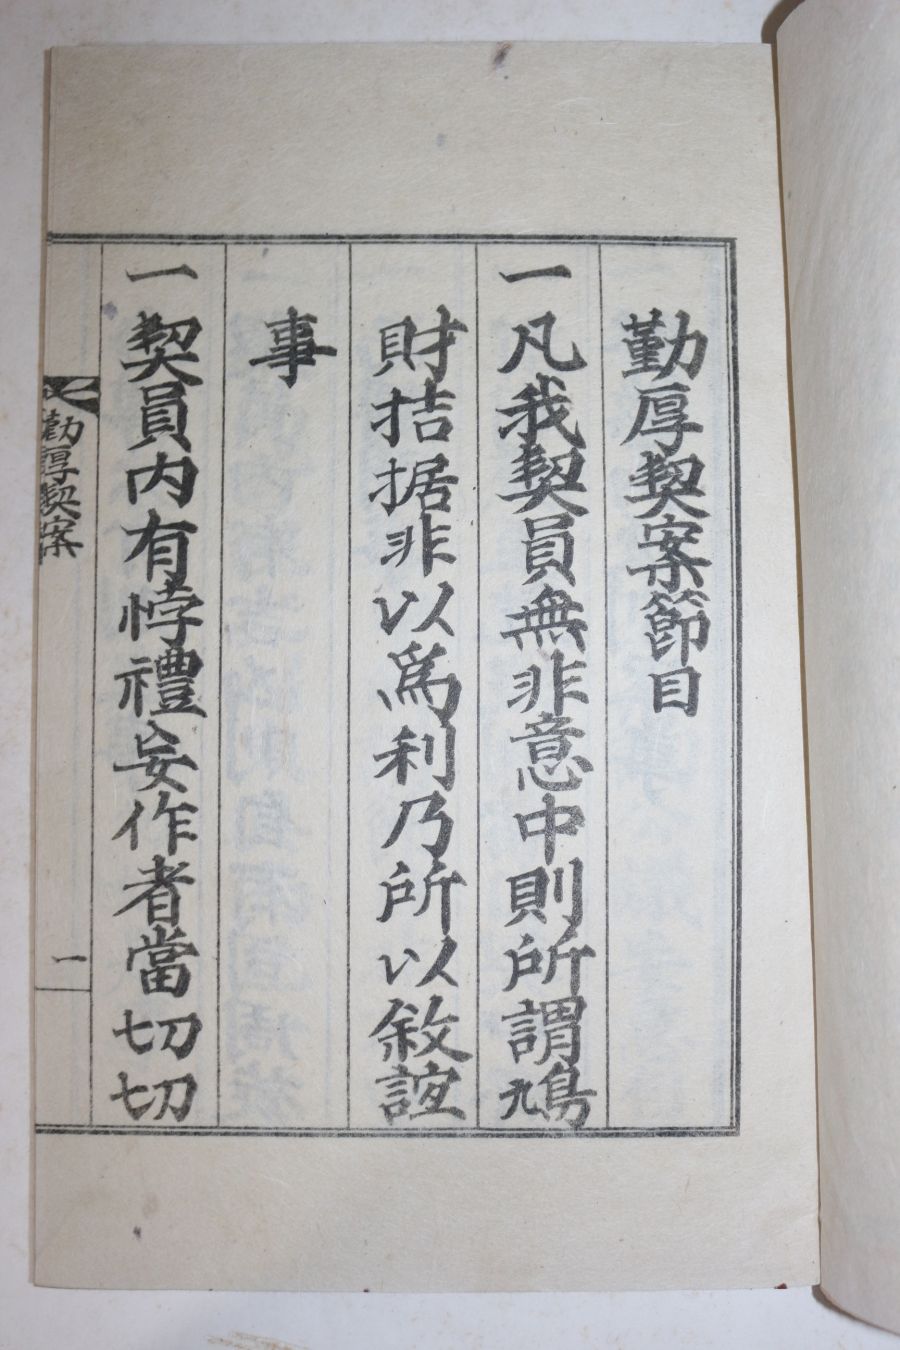 勤厚契案節目
一 凡我契員無非意中則所謂鳩
財拮据非以爲利乃所以敘誼
事
一 契員內有悖禮妄作者當切切
勤厚契案
一